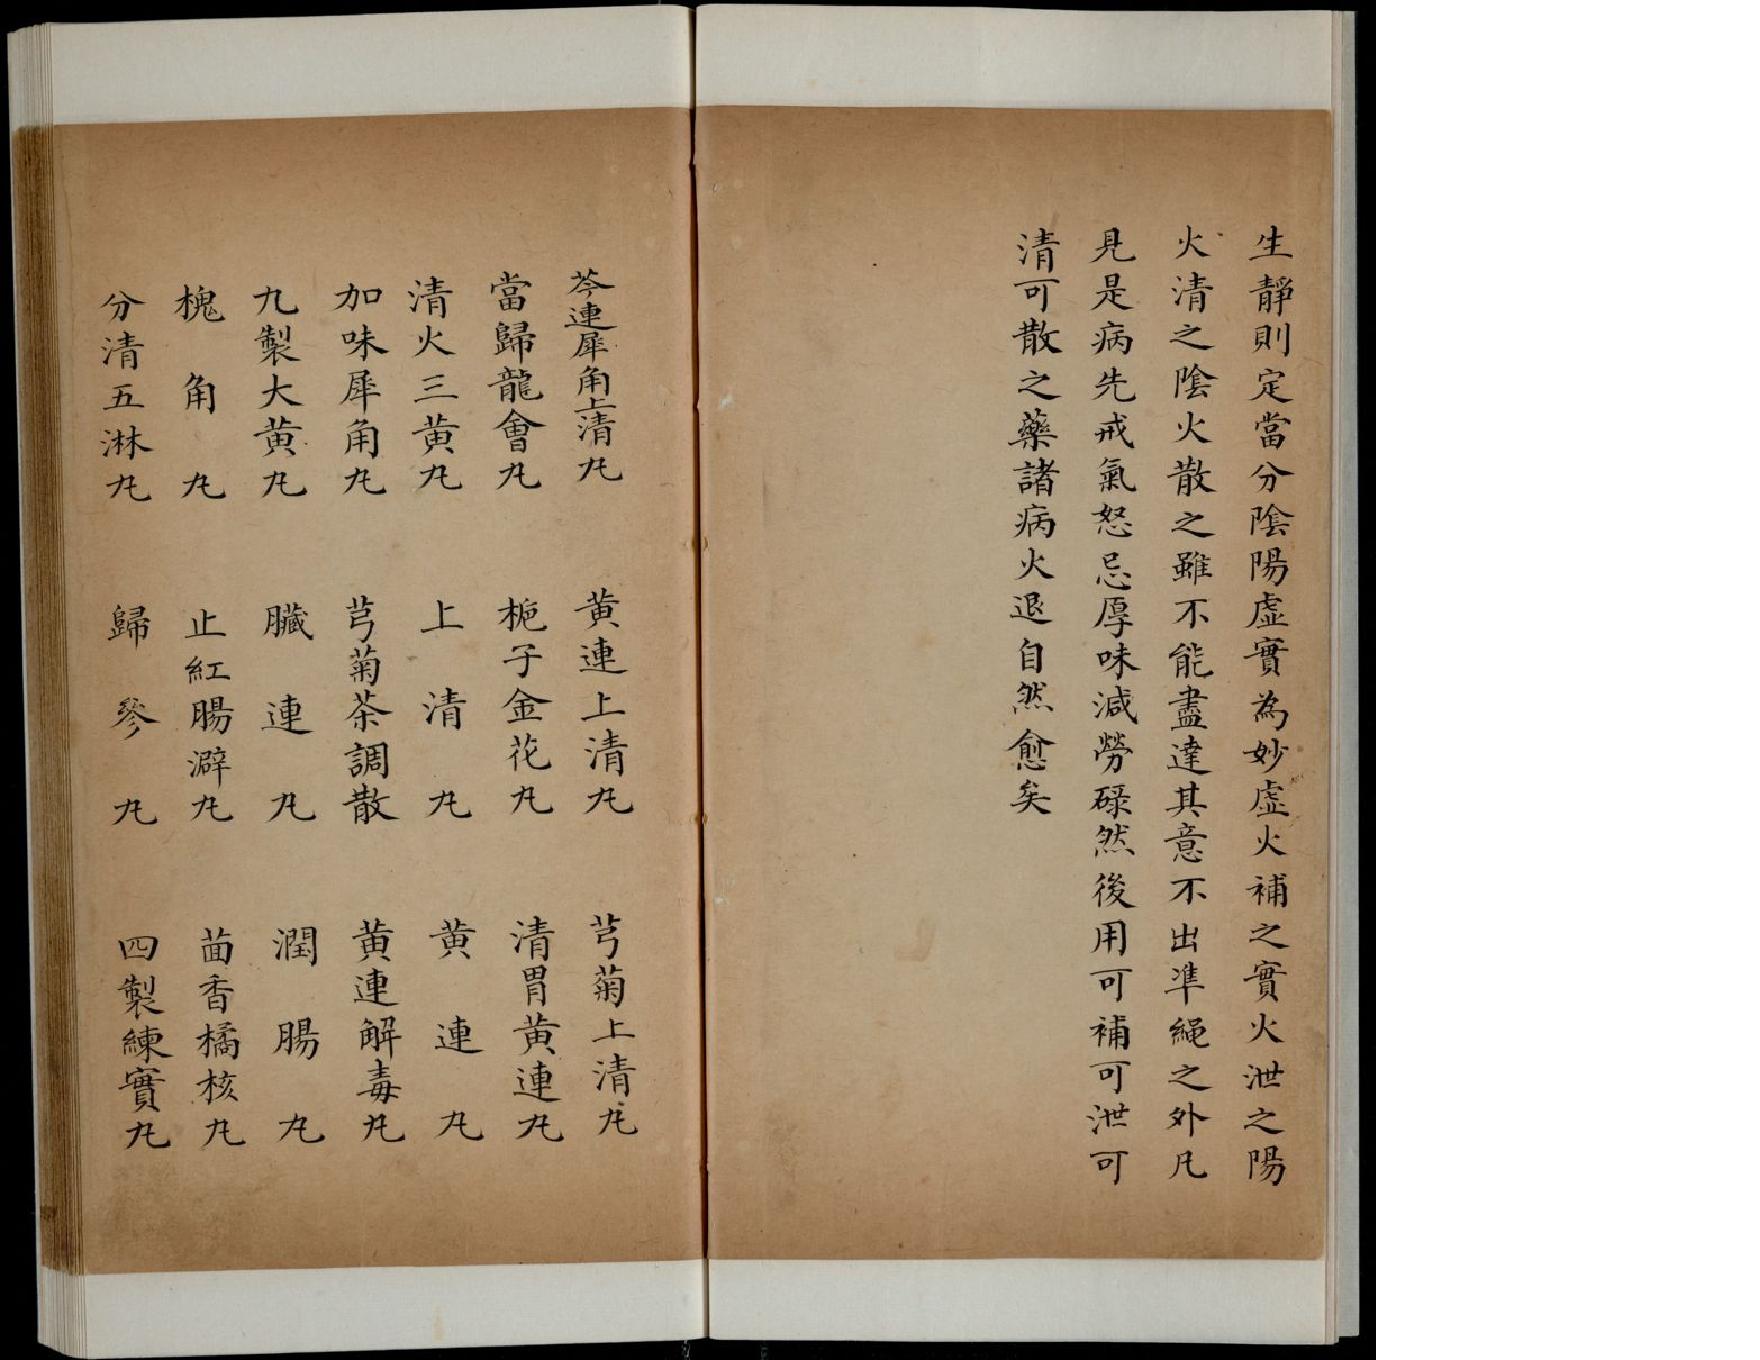 生靜則定當分陰陽虛實為妙虛火補之實火泄之陽
火清之陰火散之雖不能盡達其意不出準繩之外凡
見是病先戒氣怒忌厚味減勞碌然後用可補可泄可
清可散之藥諸病火退自然愈矣
芩連犀角上清丸 黃連上清丸 芎菊上清丸
當歸龍會丸 梔子金花丸 清胃黃連丸
清火三黃丸 上清丸 黃連丸
加味犀角丸 芎菊茶調散 黃連解毒丸
九製大黃丸 臟連丸 潤腸丸
槐角丸 止紅腸澼丸 茴香橘核丸
分清五淋丸 歸參丸 四製練實丸